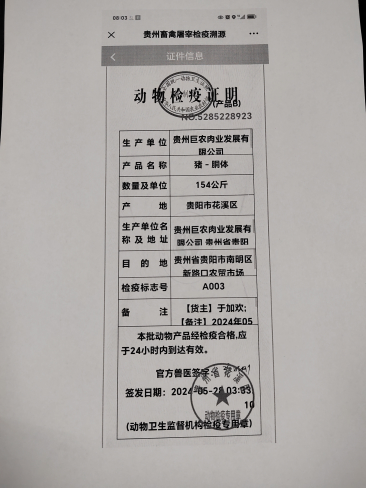 08:03
贵州畜禽屠宰检疫溯源
证件信息
动物检疫证明
(产品B)
NO.5285228923
生产单位 贵州巨农肉业发展有
限公司
产品名称 猪-胴体
数量及单位 154公斤
产地 贵阳市花溪区
生产单位名 贵州巨农肉业发展有
称及地址 限公司 贵州省贵阳
目的地 贵州省贵阳市南明区
新路口农贸市场
检疫标志号 A003
备注 【货主】于加欢;
【备注】2024年05
本批动物产品经检疫合格,应
于24小时内到达有效。
官方兽医签字:
签发日期: 2024-05-28 03:33
10
(动物卫生监督机构检疫专用章)
动物检疫专用章